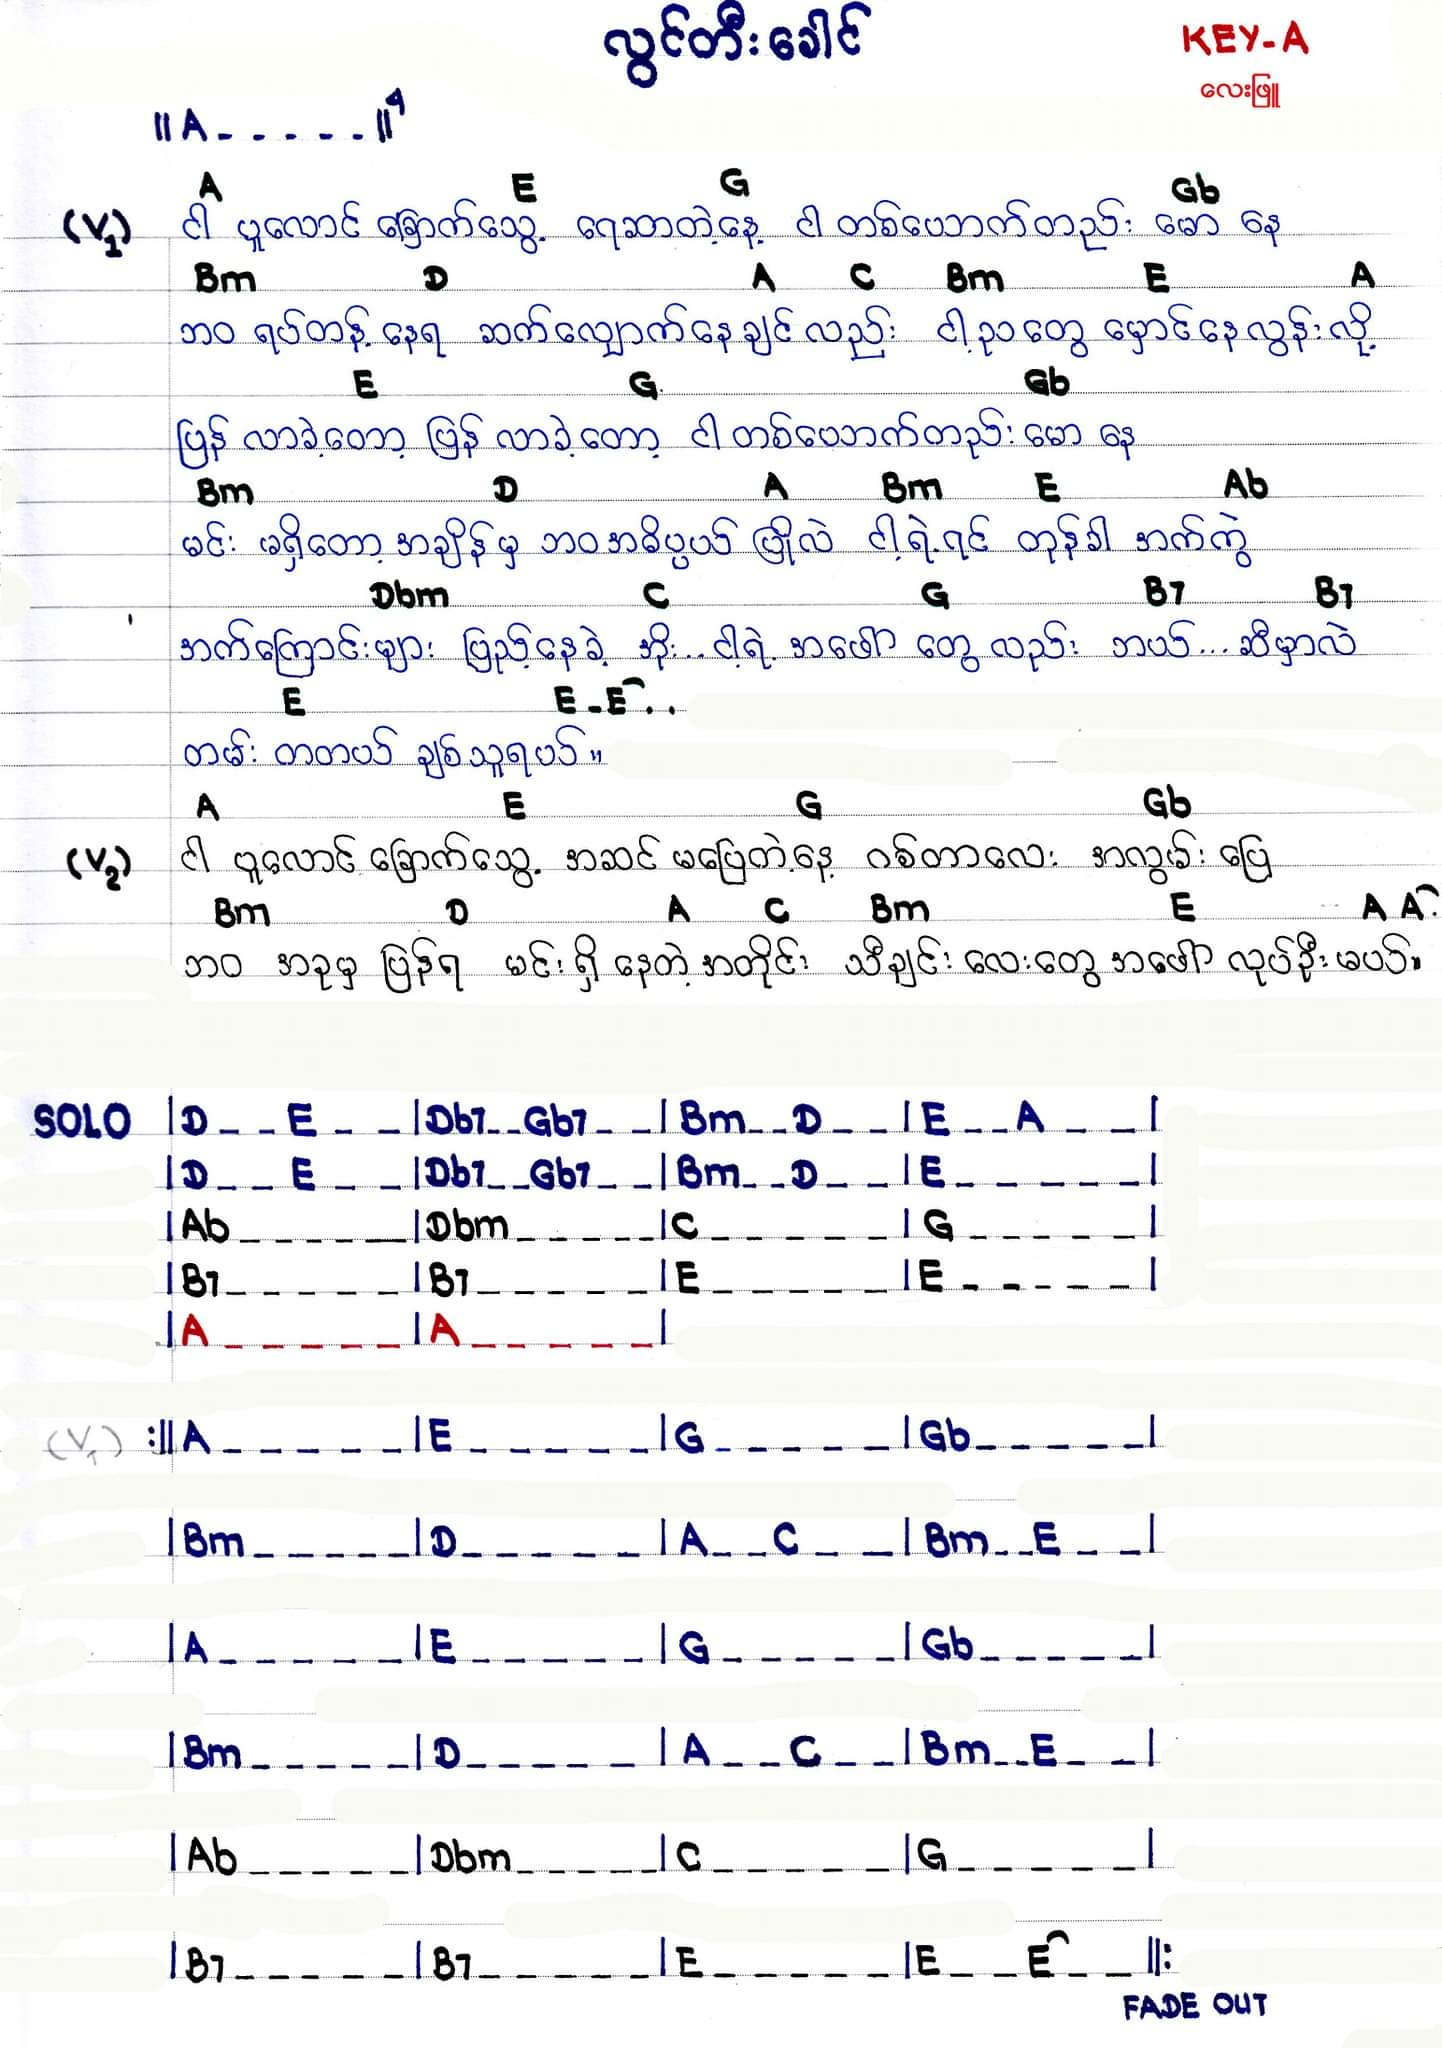 လွင်တီးခေါင်
KEY-A
လေးဖြူ
||A - - - - - ||4
A E G Gb
(V1) ငါ ပူလောင် ခြောက်သွေ့ ရေဆာတဲ့နေ့ ငါ တစ်ယောက်တည်း မော နေ
Bm D A C Bm E A
ဘဝ ရပ်တန့် နေရ ဆက်လျှောက်နေချင် လည်း ငါ့ဘဝတွေ မှောင်နေလွန်းလို့
E G Gb
ပြန် လာခဲ့တော့ ပြန် လာခဲ့တော့ ငါ တစ်ယောက်တည်း မော နေ
Bm D A Bm E Ab
မင်း မရှိတော့ အချိန်မှ ဘဝအဓိပ္ပယ် ပြိုလဲ ငါ့ရဲ့ရင် တုန်ခါ အက်ကွဲ
Dbm C G B7 B7
အက်ကြောင်းများ ပြည့်နေခဲ့ အိုး... ငါ့ရဲ့ အဖော် တွေ လည်း ဘယ်... ဆီမှာလဲ
E E - E . .
တမ်း တတယ် ချစ်သူရယ်။
A E G Gb
(V2) ငါ ပူလောင် ခြောက်သွေ့ အဆင် မပြေတဲ့နေ့ ဂစ်တာလေး အလွမ်း ပြေ
Bm D A C Bm E A A
ဘဝ အခုမှ ပြန်ရ မင်းရှိ နေတဲ့ အတိုင်း သီချင်း လေးတွေ အဖော် လုပ်ဦးမယ်။
SOLO |D _ _ E _ _ |Db7 _ _ Gb7 _ _ |Bm _ _ D _ _ |E _ _ A _ _ |
|D _ _ E _ _ |Db7 _ _ Gb7 _ _ |Bm _ _ D _ _ |E _ _ _ _ _ |
|Ab _ _ _ _ _ |Dbm _ _ _ _ _ |C _ _ _ _ _ |G _ _ _ _ _ |
|B7 _ _ _ _ _ |B7 _ _ _ _ _ |E _ _ _ _ _ |E _ _ _ _ _ |
|A _ _ _ _ _ |A _ _ _ _ _ |
(V1) :||A _ _ _ _ _ |E _ _ _ _ _ |G _ _ _ _ _ |Gb _ _ _ _ _ |
|Bm _ _ _ _ _ |D _ _ _ _ _ |A _ _ C _ _ |Bm _ _ E _ _ |
|A _ _ _ _ _ |E _ _ _ _ _ |G _ _ _ _ _ |Gb _ _ _ _ _ |
|Bm _ _ _ _ _ |D _ _ _ _ _ |A _ _ C _ _ |Bm _ _ E _ _ |
|Ab _ _ _ _ _ |Dbm _ _ _ _ _ |C _ _ _ _ _ |G _ _ _ _ _ |
|B7 _ _ _ _ _ |B7 _ _ _ _ _ |E _ _ _ _ _ |E _ _ E _ _ ||:
FADE OUT